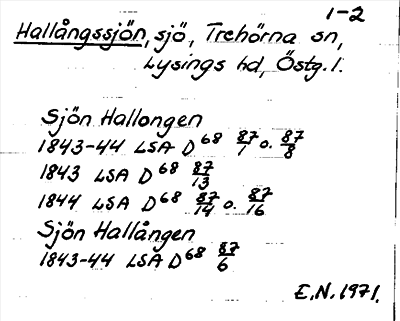 1-2
Hallångssjön, sjö, Trehörna sn,
Lysings hd, Östg. l.
Sjön Hallongen
1843-44 LSA D68 87/1 o. 87/8
1843 LSA D68 87/13
1844 LSA D68 87/14 o. 87/16
Sjön Hallången
1843-44 LSA D68 87/6
E.N. 1971.